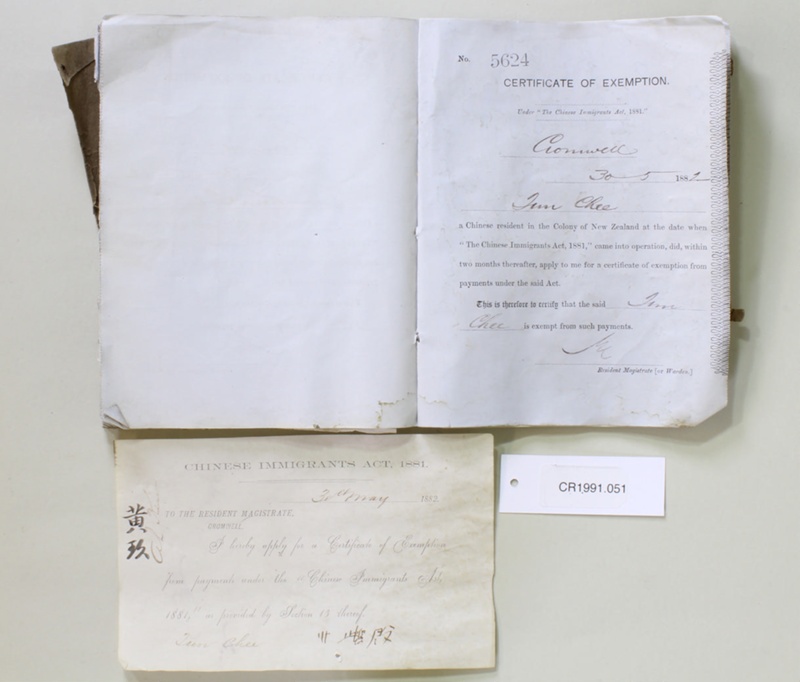 No. 5624
CERTIFICATE OF EXEMPTION.
Under "The Chinese Immigrants Act, 1881."
Cromwell
30 5 1882
Tem Chee
a Chinese resident in the Colony of New Zealand at the date when
"The Chinese Immigrants Act, 1881," came into operation, did, within
two months thereafter, apply to me for a certificate of exemption from
payments under the said Act.
This is therefore to certify that the said Tem
Chee is exempt from such payments.
Resident Magistrate [or Warden.]
CHINESE IMMIGRANTS ACT, 1881.
30th May 1882.
TO THE RESIDENT MAGISTRATE,
CROMWELL.
I hereby apply for a Certificate of Exemption
from payments under the "Chinese Immigrants Act,
1881," as provided by Section 13 thereof.
Tem Chee
黃
玖
CR1991.051